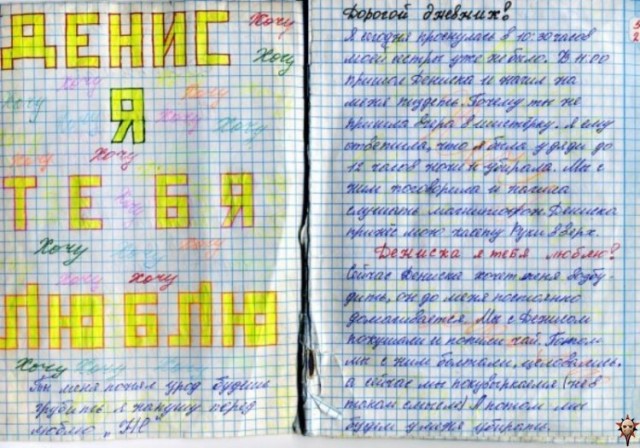 ДЕНИС
Хочу
Хочу
Хочу
Хочу
Хочу
Я
Хочу
Хочу
Хочу
Хочу
Хочу
ТЕБЯ
Хочу
Хочу
Хочу
Хочу
Хочу
ЛЮБЛЮ
Хочу Хочу Хочу Хочу
Ты меня понял урод будешь
грубить я накажу перед
Дорогой дневник!
Я сегодня проснулась в 10:30 часов
моей сестры уже не было. В 11.00
пришел Дениска и начил на
меня пиздеть. Почему ты не
пришла вчера в шестёрку. Я ему
ответила, что я была у дяди до
12 часов ночи и убирала. Мы с
ним поговорила и начила
слушать магнитофон. Дениска
принёс мою касету Руки Вверх.
Дениска я тебя люблю?
Сейчас Дениска хочит меня возбу-
дить, он до меня постоянно
домагивается. Мы с Денисом
покушали и попили чай. Потом
мы с ним болтали, целовались,
а сейчас мы покувыркаемся (не в
таком смысле) А потом мы
будем у меня убирать.